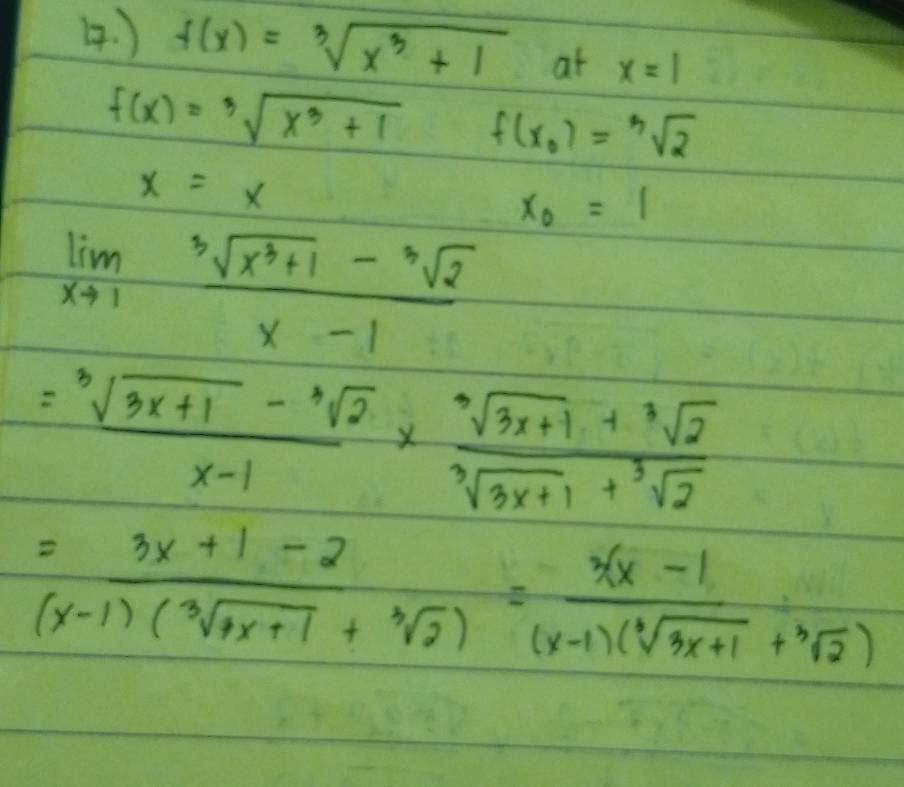 17.) f(x) = ∛(x³ + 1) at x = 1
f(x) = ∛(x³ + 1) f(x₀) = ∛2
x = x x₀ = 1
lim x→1 (∛(x³+1) - ∛2) / (x - 1)
= (∛(3x+1) - ∛2) / (x-1) × (∛(3x+1) + ∛2) / (∛(3x+1) + ∛2)
= (3x + 1 - 2) / ((x-1)(∛(3x+1) + ∛2)) = (3(x - 1) / ((x-1)(∛(3x+1) + ∛2))